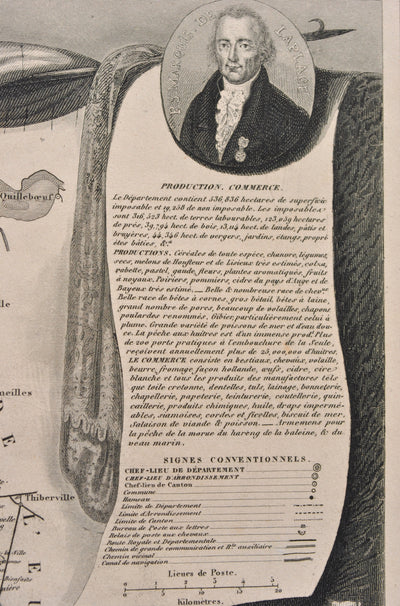 P. S. MARQUIS DE LAPLACE
Quillebœuf
PRODUCTION. COMMERCE.
Le Département contient 536,836 hectares de superficie
imposable et 19,258 de non imposable. Les imposables
sont 316,523 hect. de terres labourables, 123,039 hectares
de prés, 39,794 hect. de bois, 13,114 hect. de landes, pâtis et
bruyères, 44,346 hect. de vergers, jardins, étangs, propri-
étés bâties, &a.
PRODUCTIONS. Céréales de toute espèce, chanvre, légumes,
secs, melons de Honfleur et de Lisieux très estimés, colza,
rabette, pastel, gaude, fleurs, plantes aromatiques, fruits
à noyaux. Poiriers, pommiers, cidre du pays d'Auge et de
Bayeux très estimé. — Belle & nombreuse race de chevx.
Belle race de bêtes à cornes, gros bétail, bêtes à laine,
grand nombre de porcs, beaucoup de volailles, chapons
poulardes renommés. Gibier, particulièrement celui à
plume. Grande variété de poissons de mer et d'eau dou-
ce. La pêche aux huîtres est d'un immense prodt. Plus
de 200 ports pratiqués à l'embouchure de la Seule,
reçoivent annuellement plus de 25,000,000 d'huîtres.
LE COMMERCE consiste en bestiaux, chevaux, volaille,
beurre, fromage façon hollande, œufs, cidre, cire
blanche et tous les produits des manufactures tels
que toile cretonne, dentelles, tuls, lainage, bonneterie,
chapellerie, papeterie, teinturerie, coutellerie, quin-
caillerie, produits chimiques, huile, draps imperme-
ables, siamoises, cordes et ficelles, biscuit de mer,
Salaison de viande & poisson. — Armemens pour
la pêche de la morue du hareng de la baleine, & du
veau marin.
meilles
DE
Thiberville
L'EU
la Ville
Bienfaite
SIGNES CONVENTIONNELS.
CHEF-LIEU DE DÉPARTEMENT
CHEF-LIEU D'ARRONDISSEMENT
Chef-lieu de Canton
Commune
Hameau
Limite de Département
Limite d'Arrondissement
Limite de Canton
Bureau de Poste aux lettres
Relais de poste aux chevaux
Route Royale et Départementale
Chemin de grande communication et Rte auxiliaire
Chemin vicinal
Canal de navigation
Lieues de Poste.
Kilomètres.